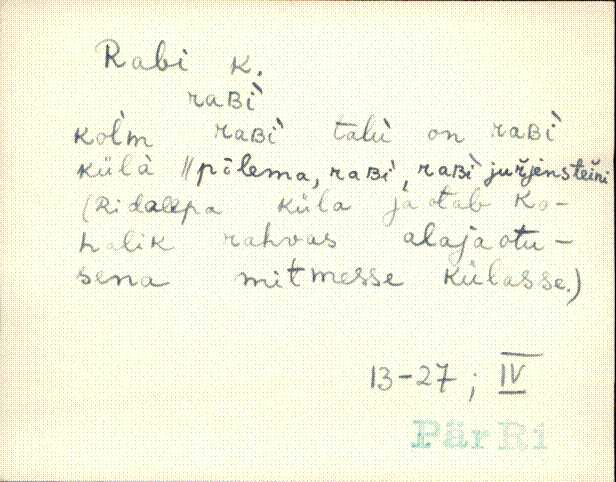 Rabi k.
raʙì
kol̀m raʙì talù on raʙì
külà || pȭlema, raʙì, raʙì juřjensteǐni
(Ridalepa küla jaotab ko-
halik rahvas alajaotu-
sena mitmesse külasse.)
13-27; IV
Pär Ri